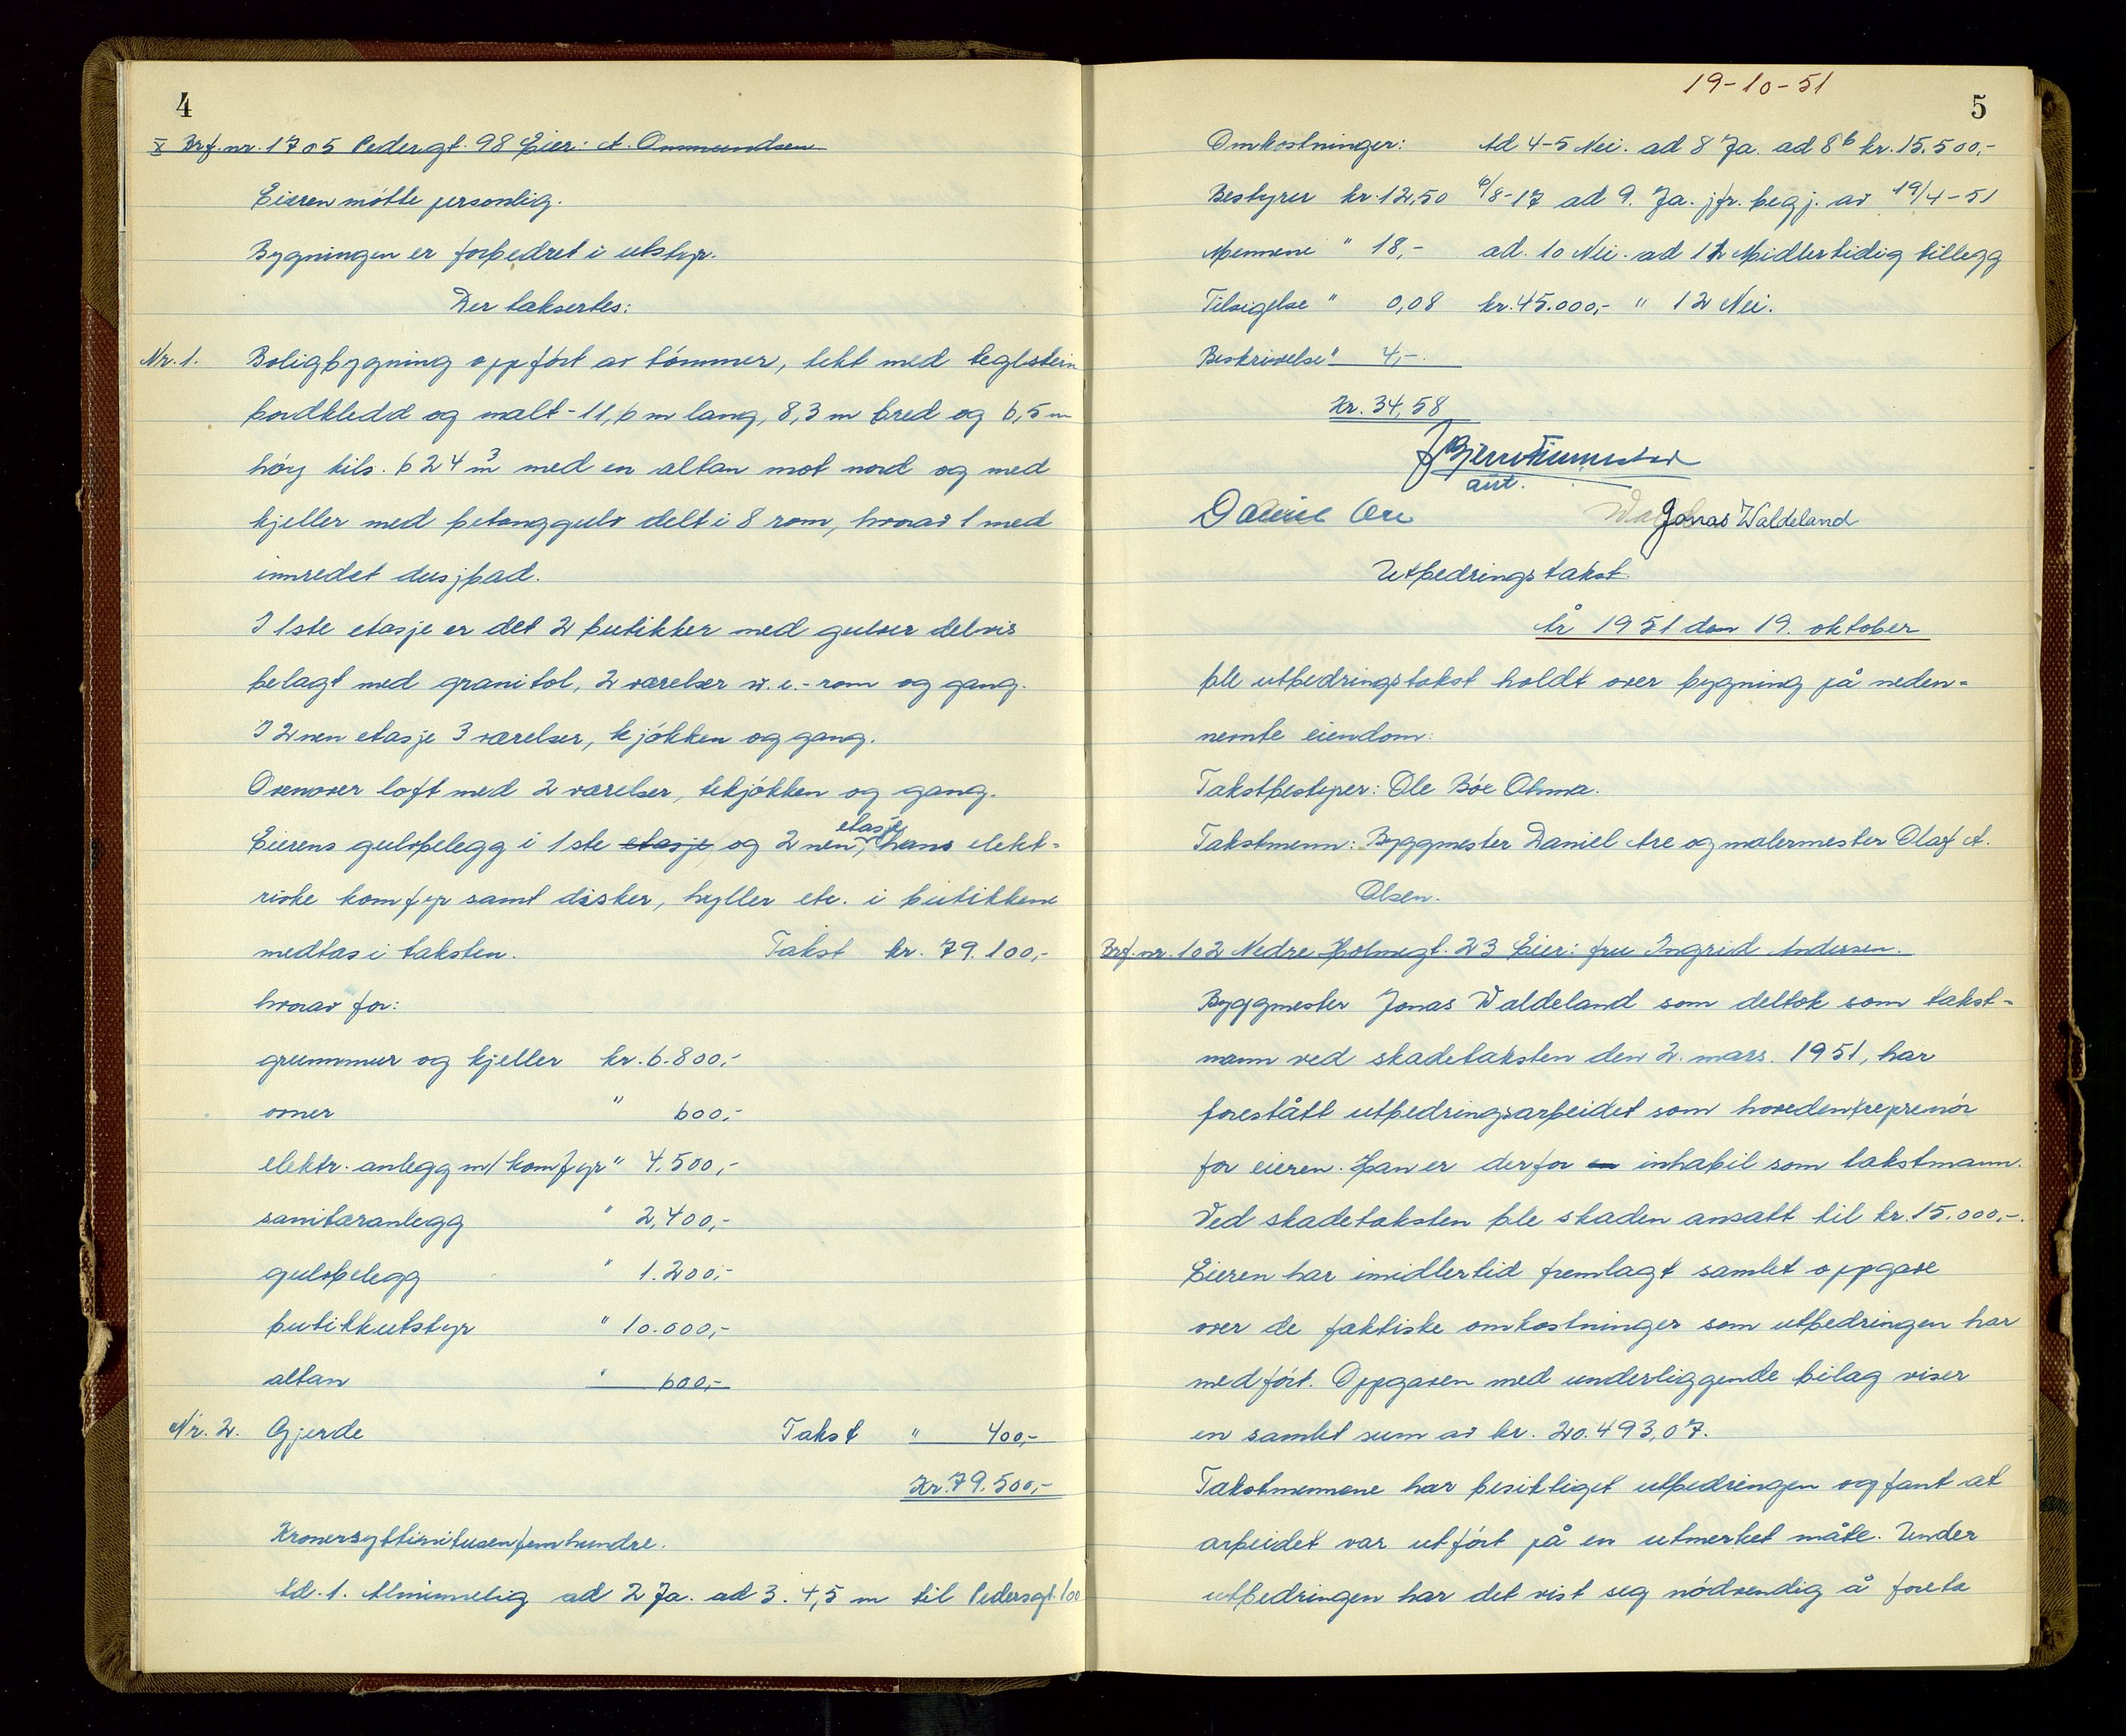 4
X Brf.nr. 1705 Pedersgt. 98 Eier: A. Ommundsen
Eieren møtte personlig.
Bygningen er forbedret i utstyr.
Der taksertes:
Nr. 1. Boligbygning oppført av tømmer, tekt med teglstein
bordkledd og malt - 11,6 m lang, 8,3 m bred og 6,5 m
høy tils. 624 m³ med en altan mot nord og med
kjeller med betonggulv delt i 8 rom, hvorav 1 med
innredet dusjbad.
I 1ste etasje er det 2 butikker med gulver delvis
belagt med granitol, 2 værelser w.c.-rom og gang.
I 2nen etasje 3 værelser, kjøkken og gang.
Ovenover loft med 2 værelser, tekjøkken og gang.
Eierens gulvbelegg i 1ste etasje og 2nen etasje, hans elekt-
riske komfyr samt disker, hyller etc. i butikkene
medtas i taksten. Takst kr. 79.100,-
hvorav for:
grunnmur og kjeller kr. 6.800,-
ovner " 600,-
elektr. anlegg m/komfyr " 4.500,-
sanitæranlegg " 2.400,-
gulvbelegg " 1.200,-
butikkutstyr " 10.000,-
altan " 600,-
Nr. 2. Gjerde Takst " 400,-
Kr. 79.500,-
Kronersyttinitusenfemhundre.
Ad. 1. Alminnelig ad 2 Ja. ad 3. 4,5 m til Pedersgt. 100
19-10-51
5
Omkostninger: Ad 4-5 Nei. ad 8 Ja. ad 8b kr. 15.500,-
Bestyrer kr. 12,50 6/8-17 ad 9. Ja. jfr. begj. av 19/4-51
Mennene " 18,- ad. 10 Nei. ad 11 Midlertidig tillegg
Tilsigelse " 0,08 kr. 45.000,- " 12 Nei.
Beskrivelse " 4,-
Kr. 34,58
ass.
Daniel Are Jonas Waldeland
Utbedringstakst.
År 1951 den 19. oktober
ble utbedringstakst holdt over bygning på neden-
nevnte eiendom:
Takstbestyrer: Ole Bøe Ohma.
Takstmenn: Byggmester Daniel Are og malermester Olaf A.
Olsen.
Brf.nr. 102 Nedre Holmegt. 23 Eier: fru Ingrid Andersen.
Byggmester Jonas Waldeland som deltok som takst-
mann ved skadetaksten den 2. mars. 1951, har
forestått utbedringsarbeidet som hovedentreprenør
for eieren. Han er derfor en inhabil som takstmann.
Ved skadetaksten ble skaden ansatt til kr. 15.000,-.
Eieren har imidlertid fremlagt samlet oppgave
over de faktiske omkostninger som utbedringen har
medført. Oppgaven med underliggende bilag viser
en samlet sum av kr. 20.493,07.
Takstmennene har besiktiget utbedringen og fant at
arbeidet var utført på en utmerket måte. Under
utbedringen har det vist seg nødvendig å foreta